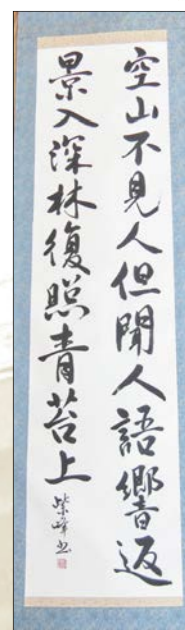 空山不見人但聞人語響返
景入深林復照青苔上
紫峰書